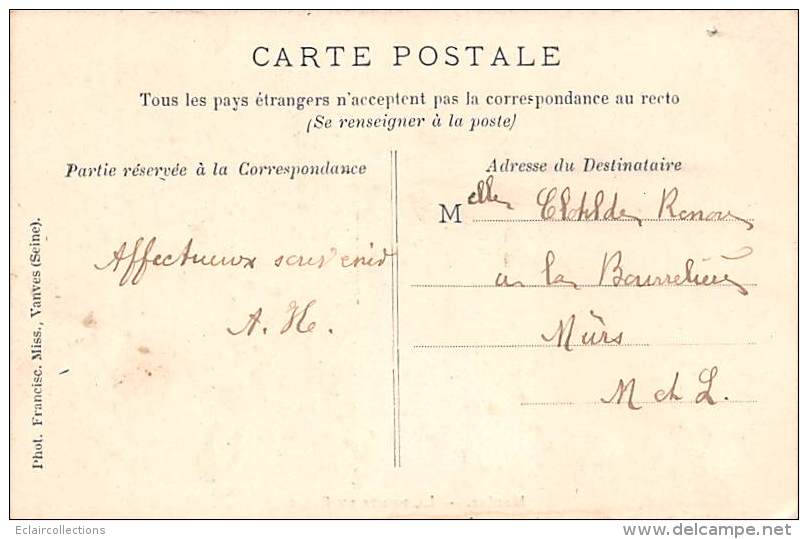 CARTE POSTALE
Tous les pays étrangers n'acceptent pas la correspondance au recto
(Se renseigner à la poste)
Partie réservée à la Correspondance
Adresse du Destinataire
Melle Clotilde Renou
à la Bourrelière
Mûrs
M et L.
Affectueux souvenir
A. H.
Phot. Francisc. Miss., Vanves (Seine).
Eclaircollections
delcampe.net